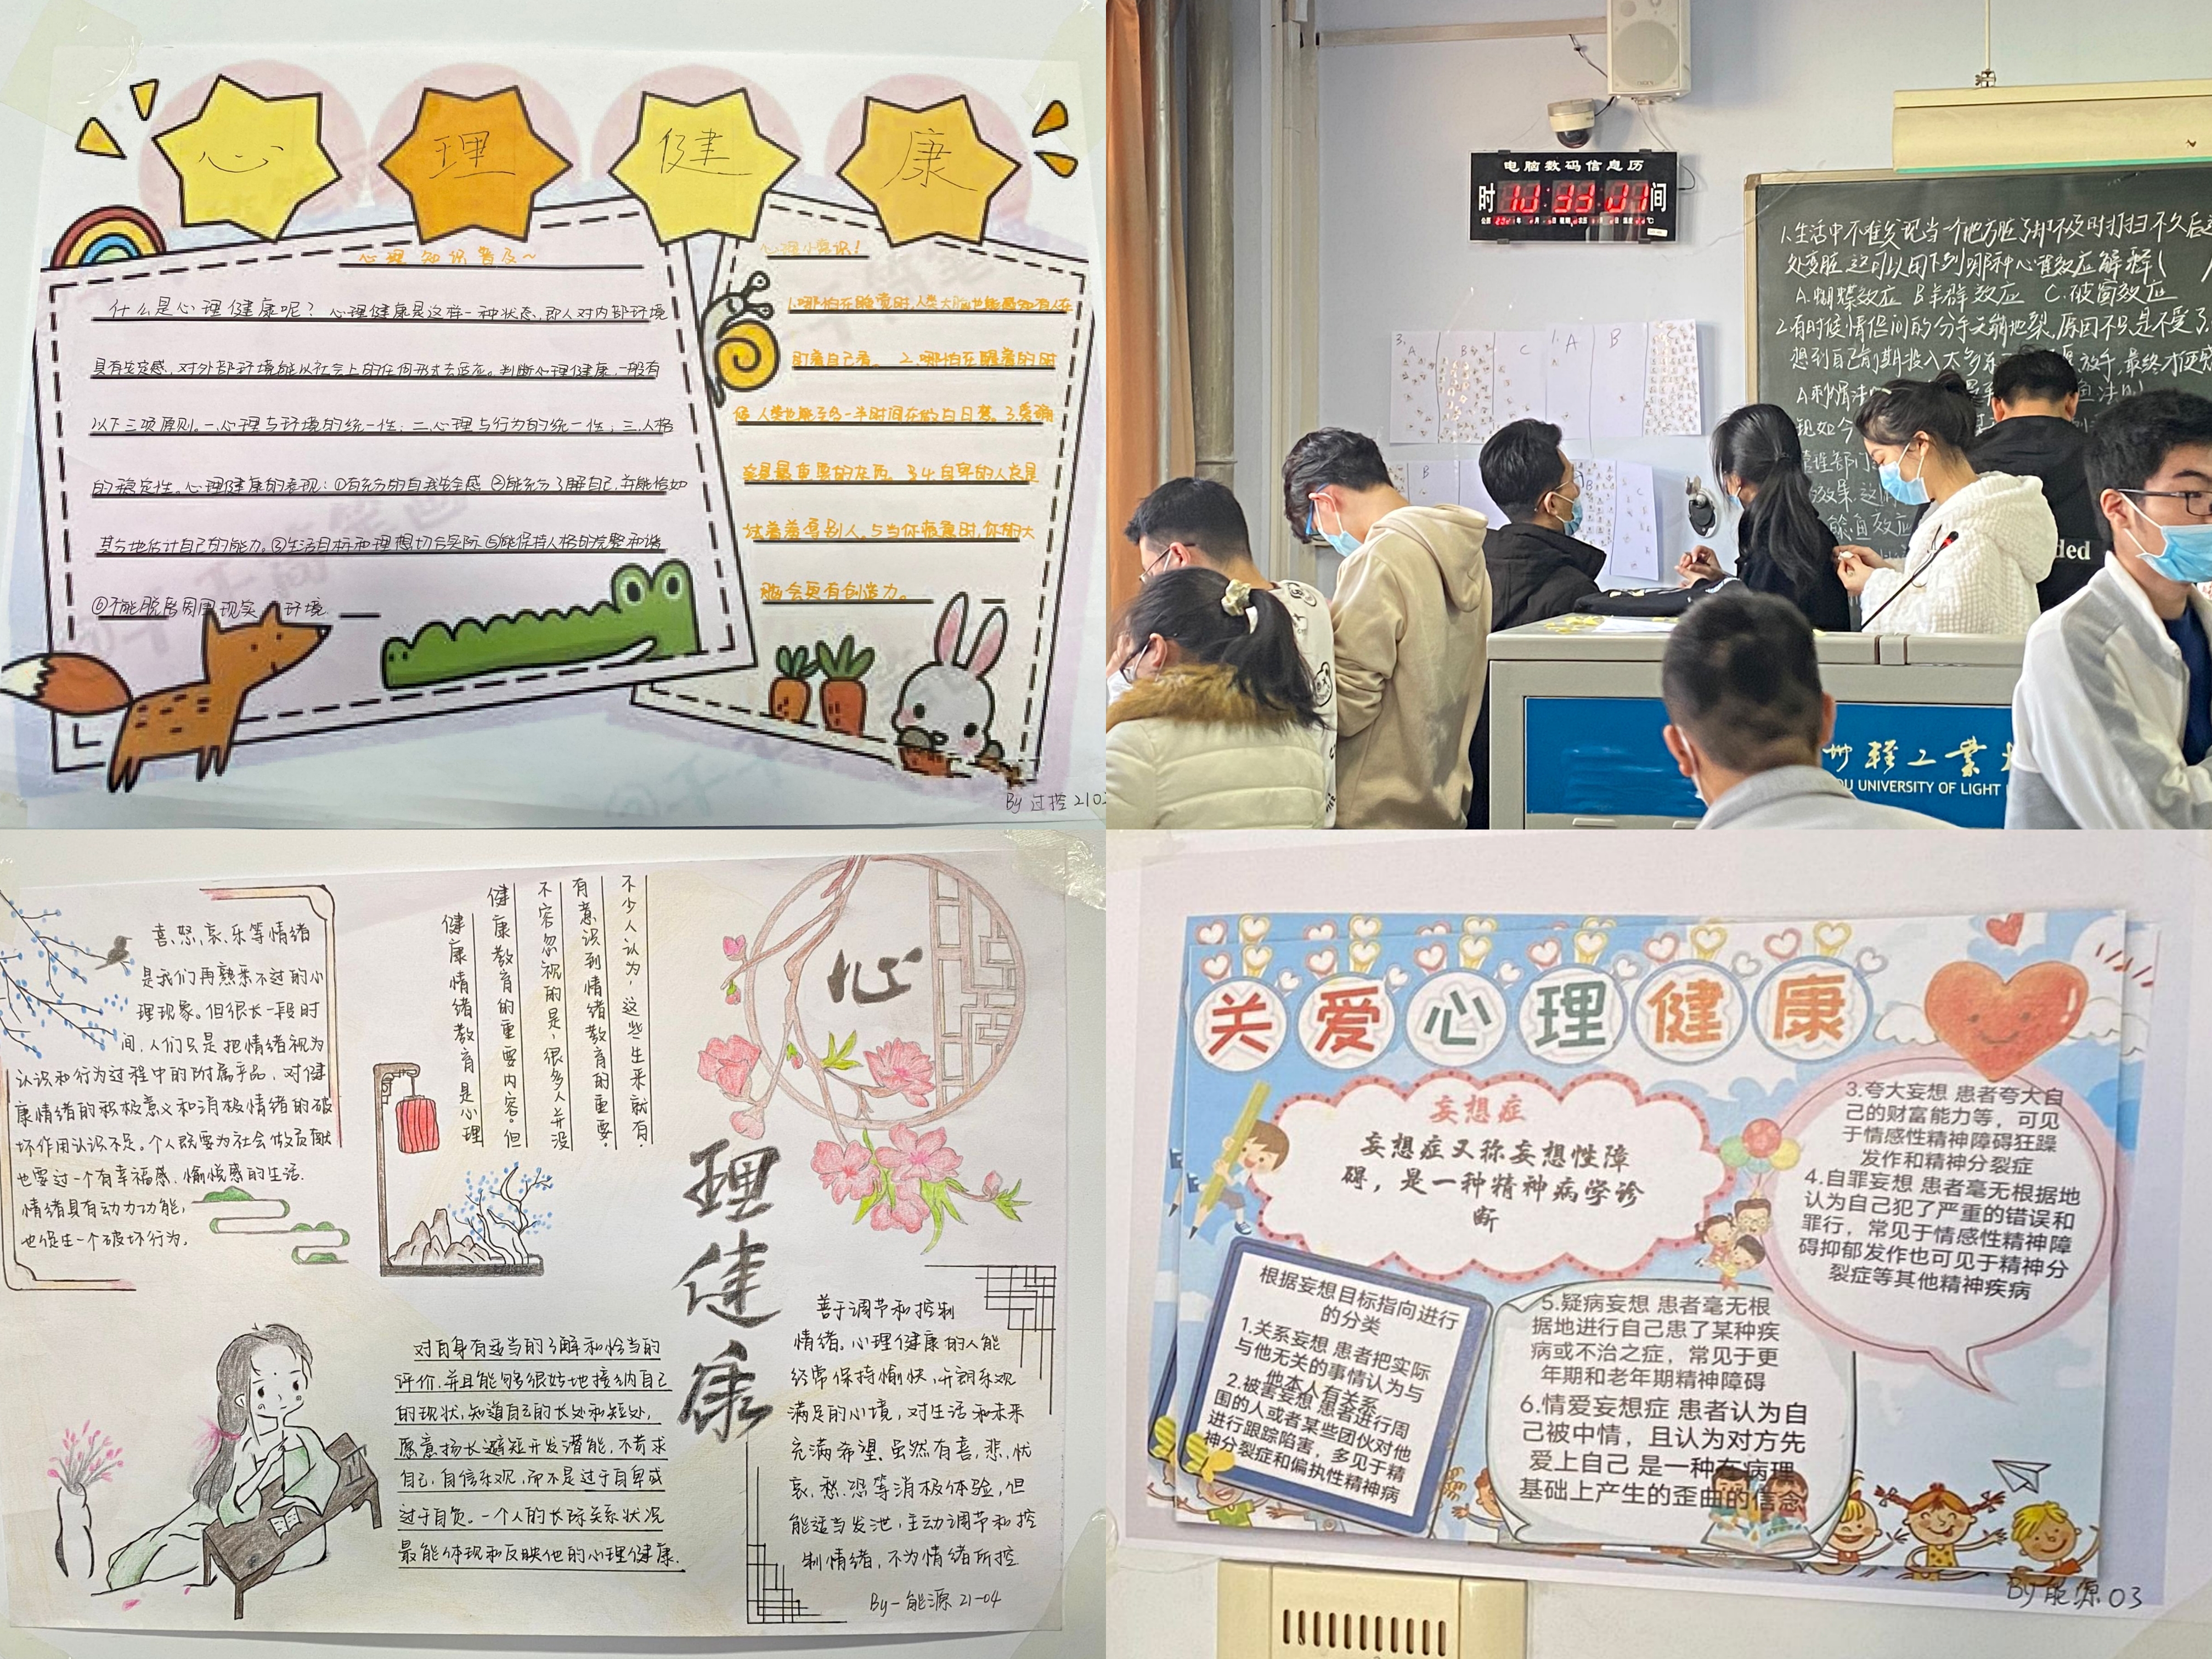 心理健康
心理知识普及~
什么是心理健康呢?心理健康是这样一种状态,即人对内部环境
具有安定感,对外部环境能以社会上的任何形式去适应。判断心理健康,一般有
以下三项原则。一、心理与环境的统一性;二、心理与行为的统一性;三、人格
的稳定性。心理健康的表现:①有充分的自我安全感 ②能充分了解自己,并能恰如
其分地估计自己的能力。③生活目标和理想切合实际 ⑤能保持人格的完整和谐
⑥不能脱离周围现实 环境
心理小常识!
1.哪怕在睡觉时,人类大脑也能感知有人在
盯着自己看。 2.哪怕在醒着的时
候,人类也能
一半时间在做白日梦。3.
是最重要的
4.自卑的人总是
试着羞辱别人。5.当你疲惫时,你的大
脑会更有创造力。
By 过控210
电脑数码信息历
时
间
3.
A
B
C
1.
A
B
1.生活中不难发现当一个地方脏了却不及时打扫不久后这
处变脏 这可以用下列哪种心理效应解释(
A.蝴蝶效应 B羊群效应 C.破窗效应
2.有时候情侣间的分手天崩地裂,原因不只是不受了,
想到自己前期投入太多
放手,最终才
ded
州轻工业
OU UNIVERSITY OF LIGHT
喜、怒、哀、乐等情绪
是我们再熟悉不过的心
理现象。但很长一段时
间,人们只是把情绪视为
认识和行为过程中的附属产品,对健
康情绪的积极意义和消极情绪的破
坏作用认识不足。个人既要为社会做贡献
也要过一个有幸福感、愉悦感的生活.
情绪具有动力功能,
也促生一个破坏行为,
不少人认为,这些生来就有,
有意识到情绪教育的重要,
不容忽视的是,很多人并没
健康教育的重要内容。但
健康情绪教育是心理
心
理
健
康
对自身有适当的了解和恰当的
评价,并且能够很好地接纳自己
的现状,知道自己的长处和短处,
愿意扬长避短开发潜能,不苛求
自己,自信乐观,而不是过于自卑或
过于自负。一个人的人际关系状况
最能体现和反映他的心理健康.
善于调节和控制
情绪。心理健康的人能
经常保持愉快,开朗乐观
满足的心境,对生活和未来
充满希望。虽然有喜,悲,忧
哀,愁,恐等消极体验,但
能适当发泄,主动调节和控
制情绪,不为情绪所控
By-能源21-04
关爱心理健康
妄想症
妄想症又称妄想性障
碍,是一种精神病学诊
断
根据妄想目标指向进行
的分类
1.关系妄想 患者把实际
与他无关的事情认为与
他本人有关系
2.被害妄想 患者进行周
围的人或者某些团伙对他
进行跟踪陷害,多见于精
神分裂症和偏执性精神病
3.夸大妄想 患者夸大自
己的财富能力等,可见
于情感性精神障碍狂躁
发作和精神分裂症
4.自罪妄想 患者毫无根据地
认为自己犯了严重的错误和
罪行,常见于情感性精神障
碍抑郁发作也可见于精神分
裂症等其他精神疾病
5.疑病妄想 患者毫无根
据地进行自己患了某种疾
病或不治之症,常见于更
年期和老年期精神障碍
6.情爱妄想症 患者认为自
己被中情,且认为对方先
爱上自己 是一种在病理
基础上产生的歪曲的信念
By 能源03